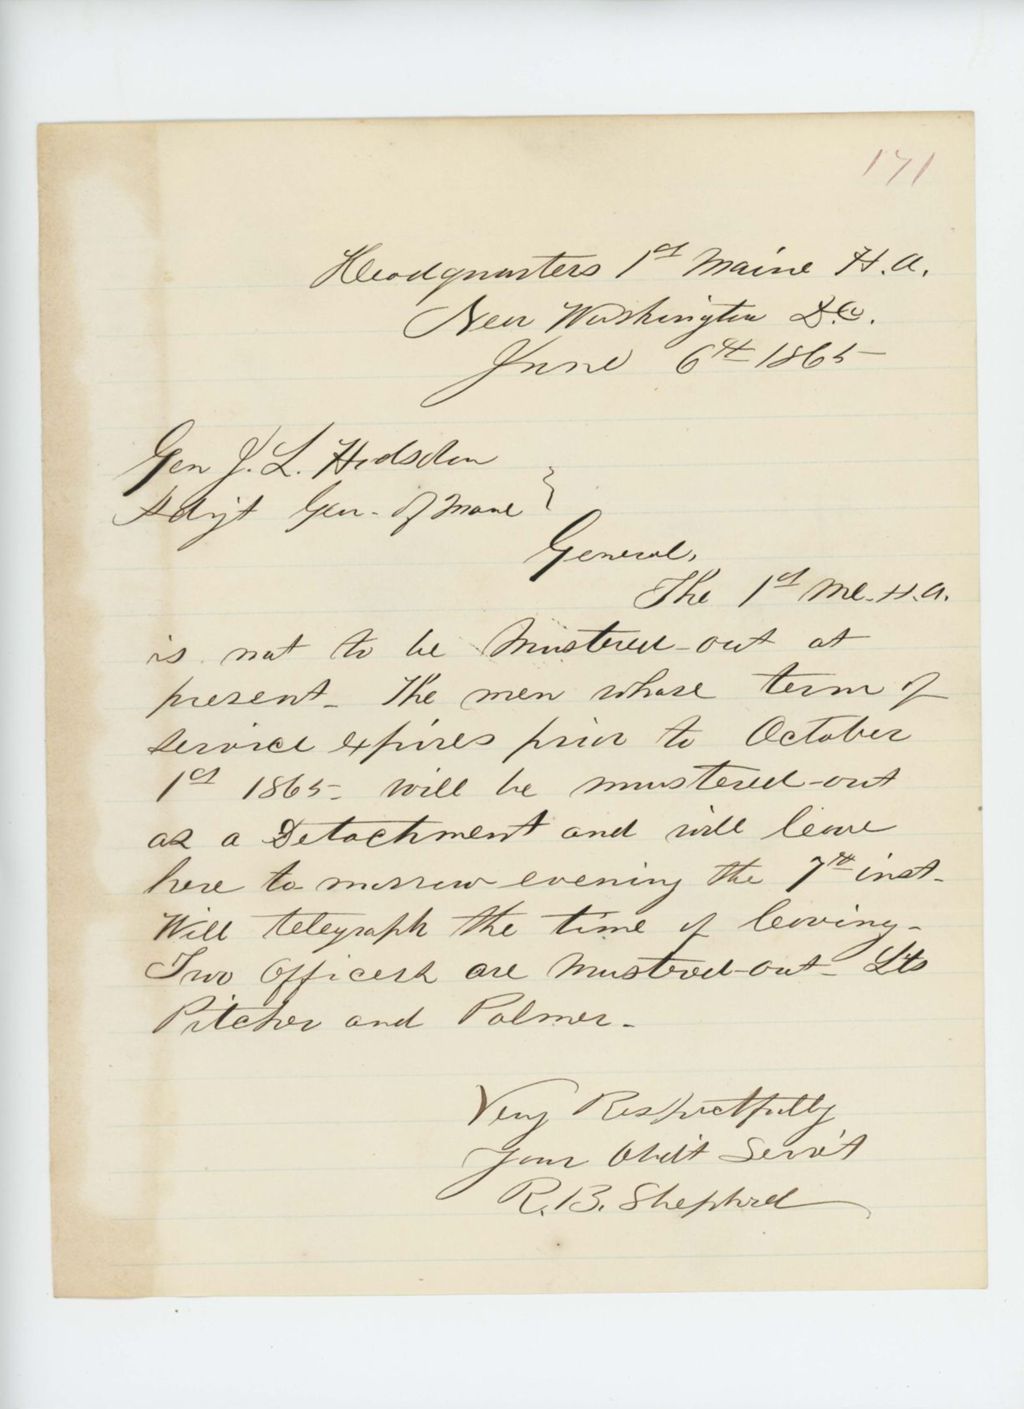 171
Headquarters 1st Maine H.A.
Near Washington D.C.
June 6th 1865
Gen J. L. Hodsdon
Adjt Gen. of Maine
General,
The 1st Me. H.A.
is not to be Mustered-out at
present. The men whose term of
service expires prior to October
1st 1865. will be mustered-out
as a Detachment and will leave
here to-morrow evening the 7th inst.
Will telegraph the time of leaving-
Two Officers are Mustered-out- Lts
Pitcher and Palmer.
Very Respectfully
Your Obdt Serv't
R. B. Shepherd